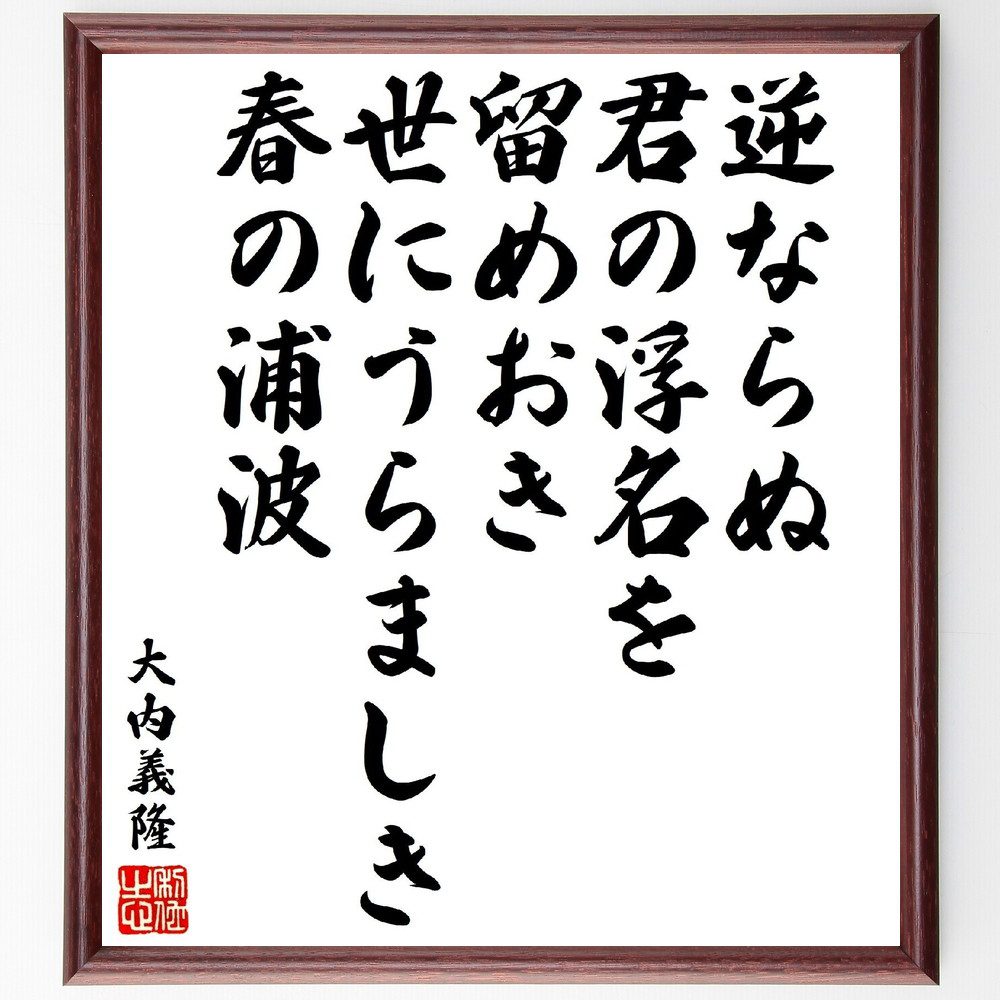 逆ならぬ
君の浮名を
留めおき
世にうらましき
春の浦波
大内義隆